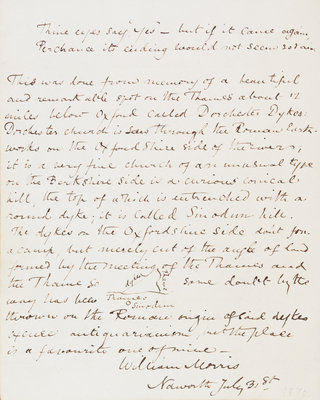 Thine eyes say "Yes" — but if it came again
Perchance its ending would not seem so vain
This was done from memory of a beautiful
and remarkable spot on the Thames about 12
miles below Oxford called Dorchester Dykes:
Dorchester church is seen through the Roman Earth-
works on the Oxfordshire side of the river;
it is a very fine church of an unusual type
on the Berkshire side is a curious conical
hill, the top of which is entrenched with a
round dyke; it is called Sinodun hill.
The dykes on the Oxfordshire side don't form
a camp, but merely cut off the angle of land
formed by the meeting of the Thames and
the Thame so
Thames
Sinodun
some doubt by the
way has been
thrown on the Roman origin of said dykes
antiquarianism, but the place
is a favourite one of mine —
William Morris
Naworth July 31st